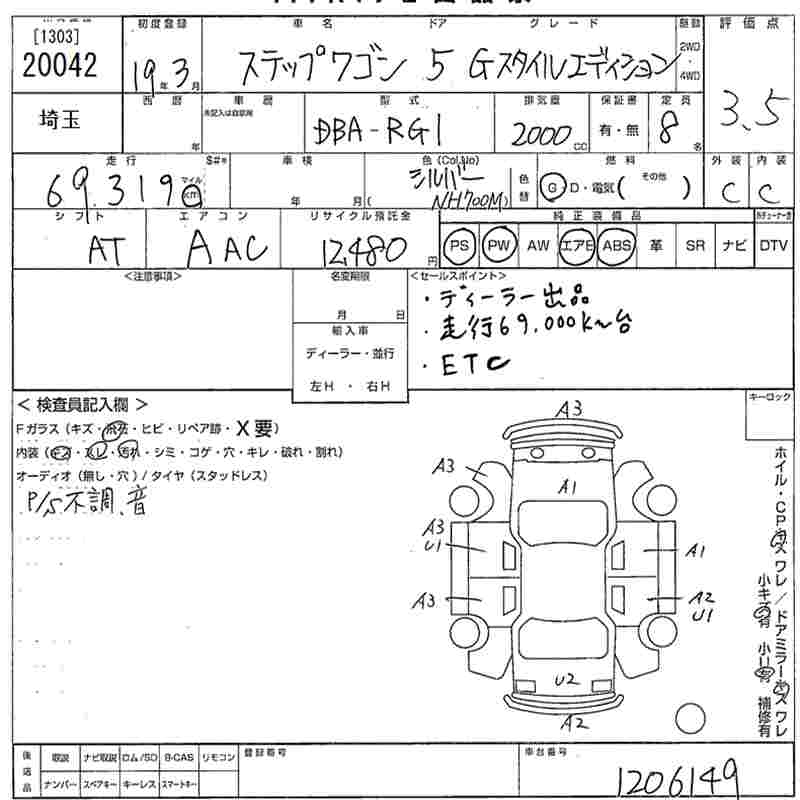 [1303] 初度登録 車名 ドア グレード 駆動 評価点
20042 19年3月 ステップワゴン 5 Gスタイルエディション 2WD・4WD 3.5
埼玉 西暦 年 車歴 未記入は自家用 型式 DBA-RG1 排気量 2000cc 保証書 有・無 定員 8名
走行 69,319 マイル km S#* 車検 年 月 色(Col,No) シルバー (NH700M) 色替 燃料 G D・電気( その他 ) 外装 C 内装 C
シフト AT エアコン AAC リサイクル預託金 12,480円 純正装備品 PS PW AW エアB ABS 革 SR ナビ DTV
<注意事項> 名変期限 <セールスポイント>
月 日 ・ディーラー出品
輸入車 ・走行69,000K~台
ディーラー・並行 ・ETC
左H ・ 右H
< 検査員記入欄 > キーロック
Fガラス(キズ・飛石・ヒビ・リペア跡・X要)
内装(キズ・スレ・汚れ・シミ・コゲ・穴・キレ・破れ・割れ)
オーディオ(無し・穴)/タイヤ(スタッドレス)
P/S不調、音
A3
A3 A1
A3 U1 A1
A3 A2 U1
U2
A2
ホイル・CPキズワレ/ドアミラーキズワレ
小キズ有 小U有 補修有
後店品 取説 ナビ取説 ロム/SD B-CAS リモコン 登録番号 車台番号
ナンバー スペアキー キーレス スマートキー 1206149